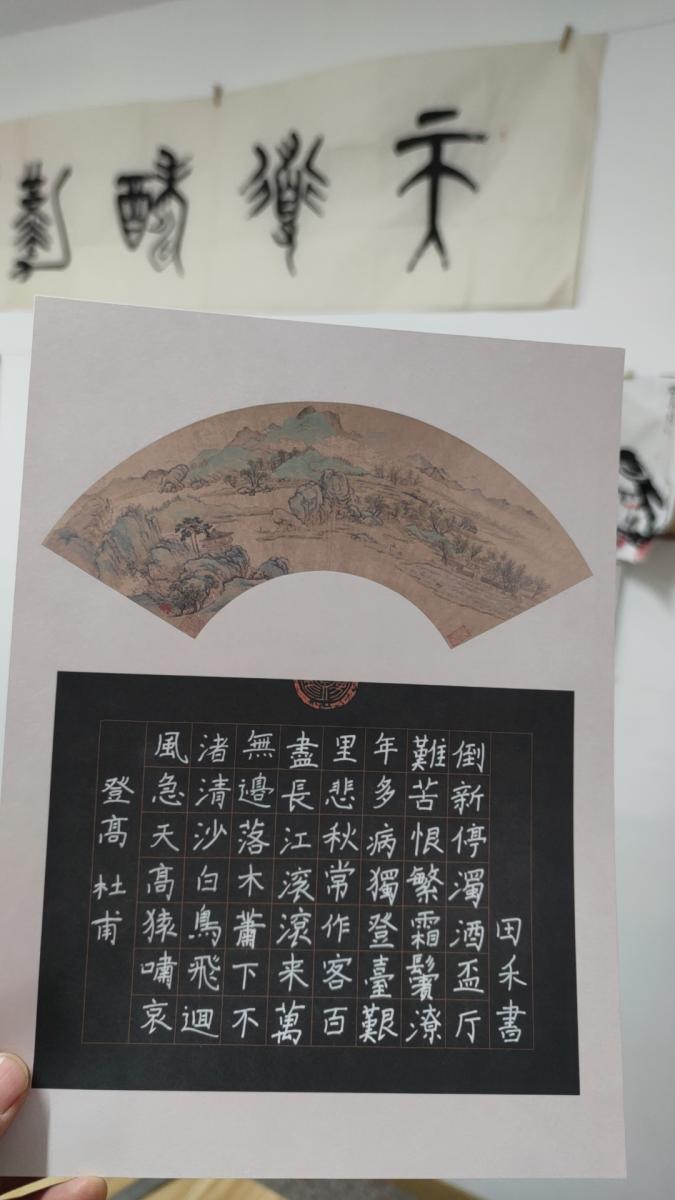 天道酬勤
登高 杜甫
風急天高猿嘯哀
渚清沙白鳥飛迴
無邊落木蕭下不
盡長江滾滾来萬
里悲秋常作客百
年多病獨登臺艱
難苦恨繁霜鬢潦
倒新停濁酒盃厅
田禾書